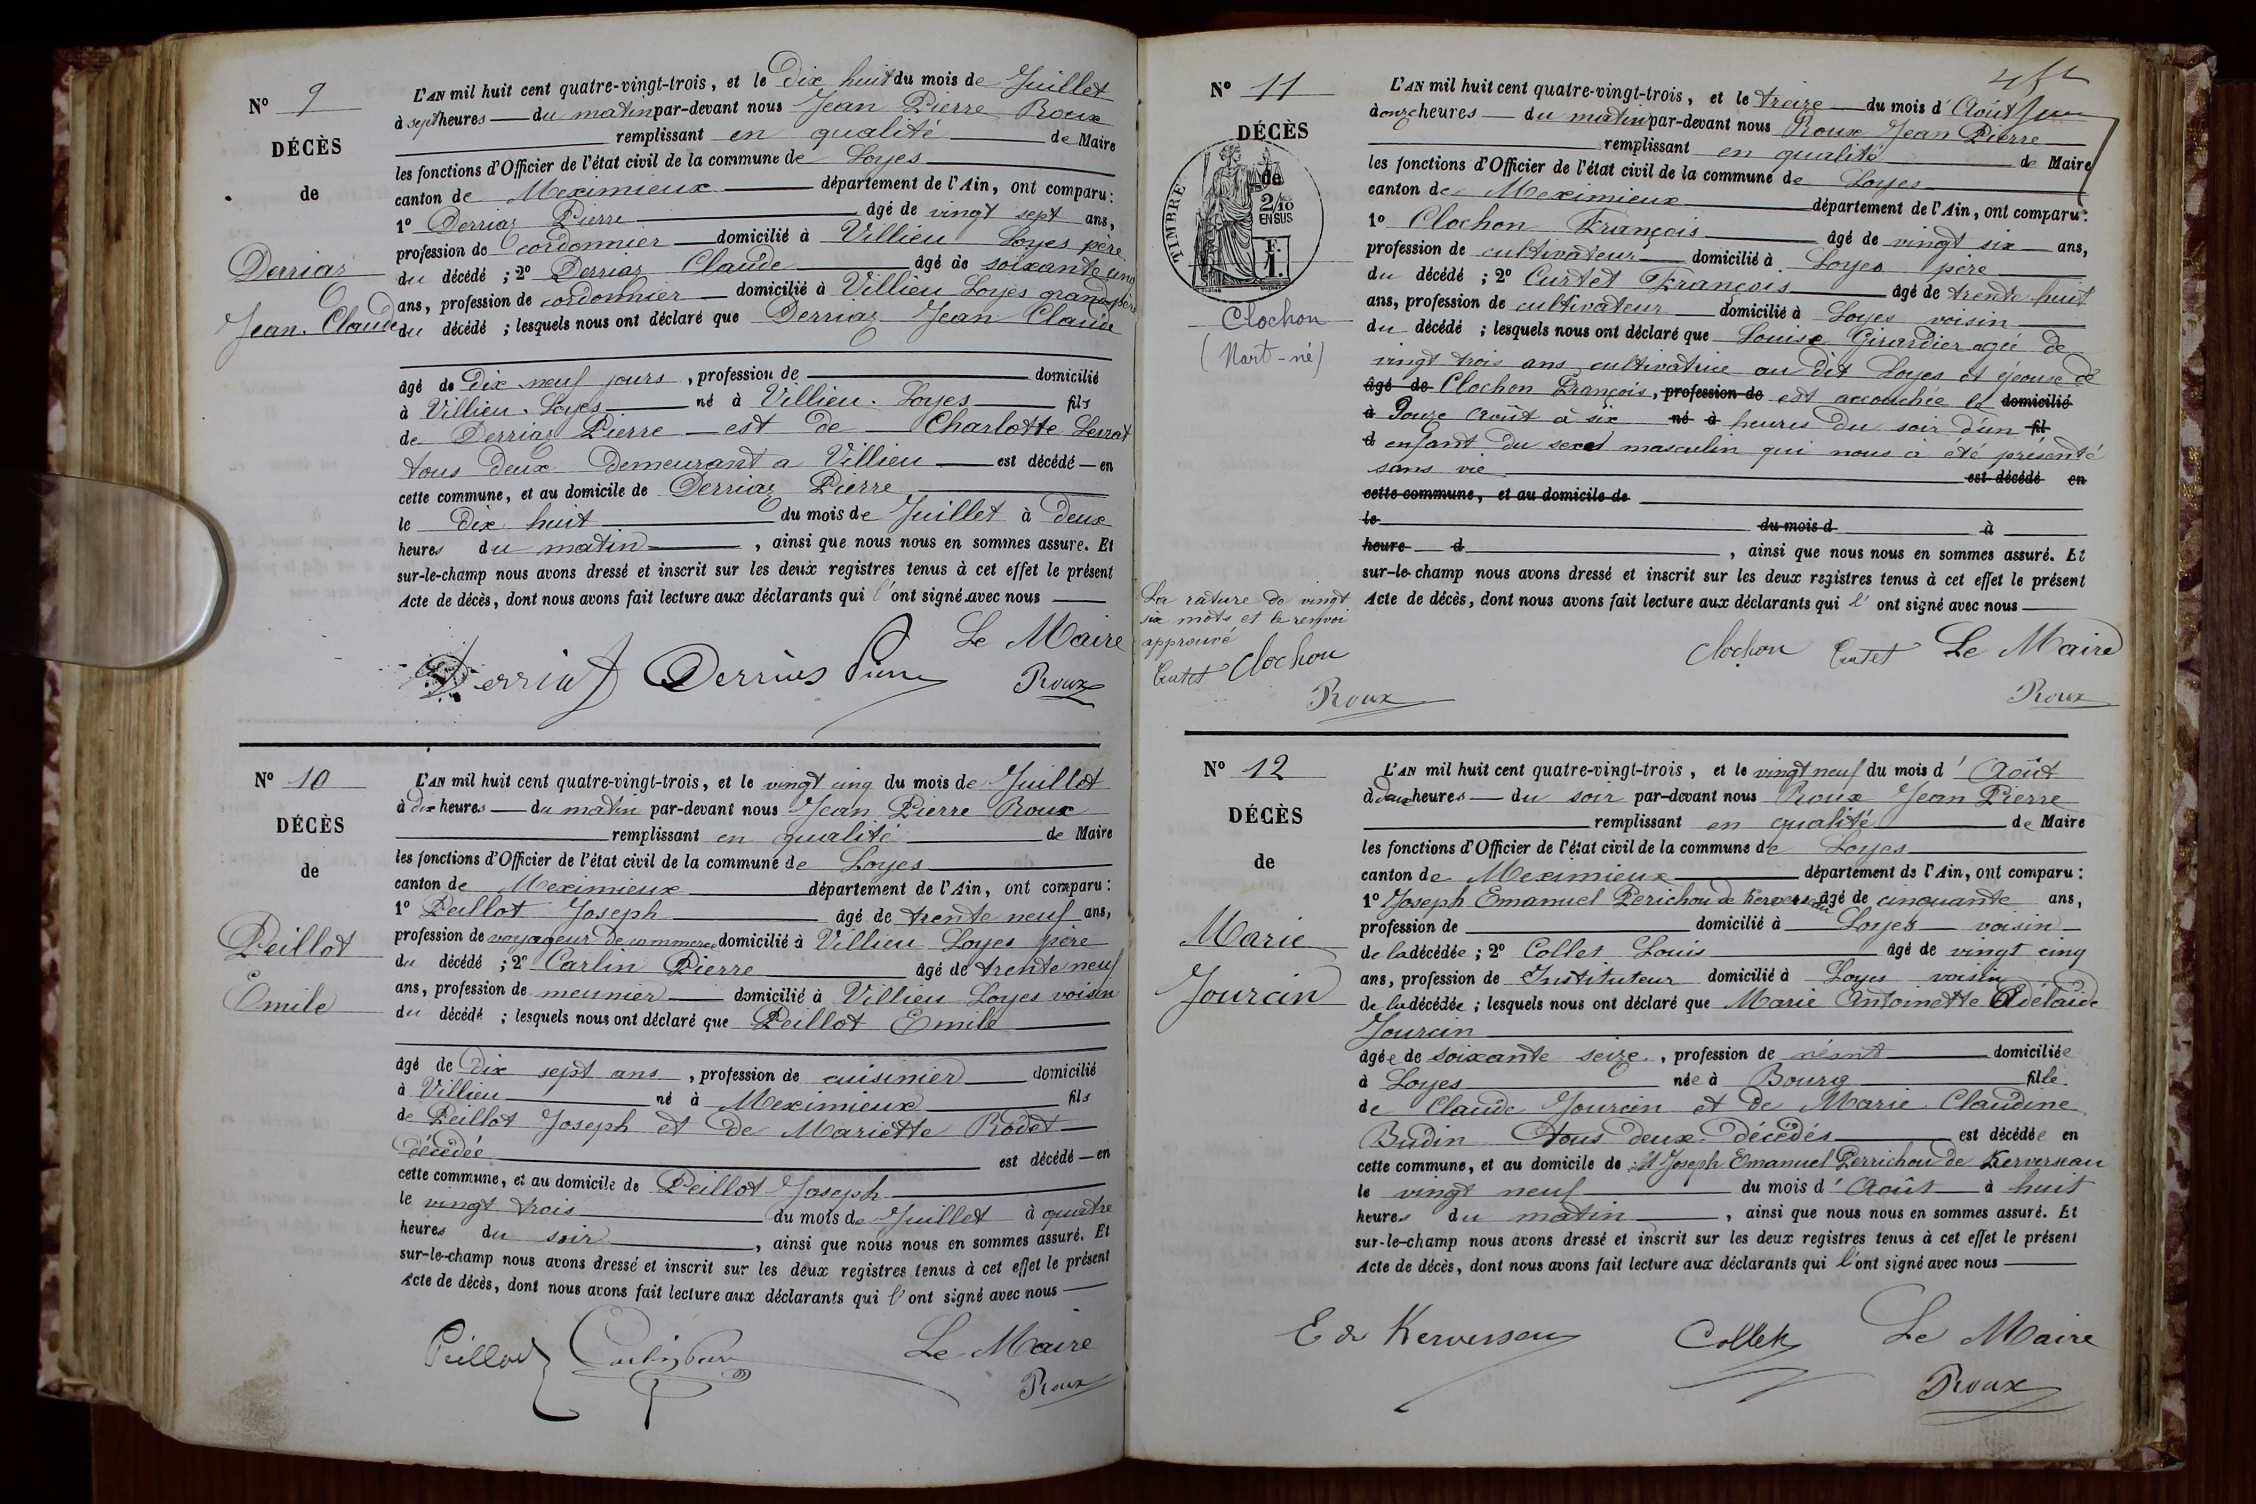 N° 9
DÉCÈS
de
Derriaz
Jean-Claude
L'AN mil huit cent quatre-vingt-trois, et le Dix huit du mois de Juillet
à sept heures du matin par-devant nous Jean Pierre Roux
remplissant en qualité de Maire
les fonctions d'Officier de l'état civil de la commune de Loyes
canton de Meximieux département de l'Ain, ont comparu :
1° Derriaz Pierre âgé de vingt sept ans,
profession de Cordonnier domicilié à Villieu Loyes père
du décédé ; 2° Derriaz Claude âgé de soixante cinq
ans, profession de cordonnier domicilié à Villieu Loyes grand-père
du décédé ; lesquels nous ont déclaré que Derriaz Jean Claude
âgé de Dix neuf jours, profession de domicilié
à Villieu-Loyes né à Villieu-Loyes fils
de Derriaz Pierre est de Charlotte
tous deux demeurant a Villieu est décédé en
cette commune, et au domicile de Derriaz Pierre
le Dix huit du mois de Juillet à deux
heures du matin, ainsi que nous nous en sommes assuré. Et
sur-le-champ nous avons dressé et inscrit sur les deux registres tenus à cet effet le présent
Acte de décès, dont nous avons fait lecture aux déclarants qui l'ont signé avec nous
Le Maire
Derriaz Derrias Pierre Roux
N° 10
DÉCÈS
de
Peillot
Emile
L'AN mil huit cent quatre-vingt-trois, et le vingt cinq du mois de Juillet
à dix heures du matin par-devant nous Jean Pierre Roux
remplissant en qualité de Maire
les fonctions d'Officier de l'état civil de la commune de Loyes
canton de Meximieux département de l'Ain, ont comparu :
1° Peillot Joseph âgé de trente neuf ans,
profession de voyageur de commerce domicilié à Villieu Loyes père
du décédé ; 2° Carlin Pierre âgé de trente neuf
ans, profession de meunier domicilié à Villieu Loyes voisin
du décédé ; lesquels nous ont déclaré que Peillot Emile
âgé de Dix sept ans, profession de cuisinier domicilié
à Villieu né à Meximieux fils
de Peillot Joseph et de Mariette Rodet
décédée est décédé en
cette commune, et au domicile de Peillot Joseph
le vingt trois du mois de Juillet à quatre
heures du soir, ainsi que nous nous en sommes assuré. Et
sur-le-champ nous avons dressé et inscrit sur les deux registres tenus à cet effet le présent
Acte de décès, dont nous avons fait lecture aux déclarants qui l'ont signé avec nous
Peillot Carlin Pierre Le Maire
Roux
N° 11
DÉCÈS
de
TIMBRE
2/10
EN SUS
F.
1.
Clochon
(Mort-né)
L'AN mil huit cent quatre-vingt-trois, et le treize du mois d'Août
à onze heures du matin par-devant nous Roux Jean Pierre
remplissant en qualité de Maire
les fonctions d'Officier de l'état civil de la commune de Loyes
canton de Meximieux département de l'Ain, ont comparu :
1° Clochon François âgé de vingt six ans,
profession de cultivateur domicilié à Loyes père
du décédé ; 2° Curtet François âgé de trente huit
ans, profession de cultivateur domicilié à Loyes voisin
du décédé ; lesquels nous ont déclaré que Louise Girardier agée de
vingt trois ans cultivatrice au dit Loyes et épouse de
âgé de Clochon François, profession de est accouchée le domicilié
à Douze Août à six né à heures du soir d'un fil
d enfant du sexe masculin qui nous à été présenté
sans vie est décédé en
cette commune, et au domicile de
le du mois d à
heure d, ainsi que nous nous en sommes assuré. Et
sur-le-champ nous avons dressé et inscrit sur les deux registres tenus à cet effet le présent
Acte de décès, dont nous avons fait lecture aux déclarants qui l'ont signé avec nous
La rature de vingt
six mots et le renvoi
approuvé
Curtet Clochon
Roux
Clochon Curtet Le Maire
Roux
N° 12
DÉCÈS
de
Marie
Jourcin
L'AN mil huit cent quatre-vingt-trois, et le vingt neuf du mois d'Août
à deux heures du soir par-devant nous Roux Jean Pierre
remplissant en qualité de Maire
les fonctions d'Officier de l'état civil de la commune de Loyes
canton de Meximieux département de l'Ain, ont comparu :
1° Joseph Emanuel Perichou de Kerverseau âgé de cinquante ans,
profession de domicilié à Loyes voisin
de la décédée ; 2° Collet Louis âgé de vingt cinq
ans, profession de Instituteur domicilié à Loyes voisin
de la décédée ; lesquels nous ont déclaré que Marie Antoinette Adélaïde
Jourcin
âgée de soixante seize, profession de néant domiciliée
à Loyes née à Bourg fille
de Claude Jourcin et de Marie Claudine
Budin tous deux décédés est décédée en
cette commune, et au domicile de M Joseph Emanuel Perrichou de Kerverseau
le vingt neuf du mois d'Août à huit
heures du matin, ainsi que nous nous en sommes assuré. Et
sur-le-champ nous avons dressé et inscrit sur les deux registres tenus à cet effet le présent
Acte de décès, dont nous avons fait lecture aux déclarants qui l'ont signé avec nous
E de Kerverseau Collet Le Maire
Roux